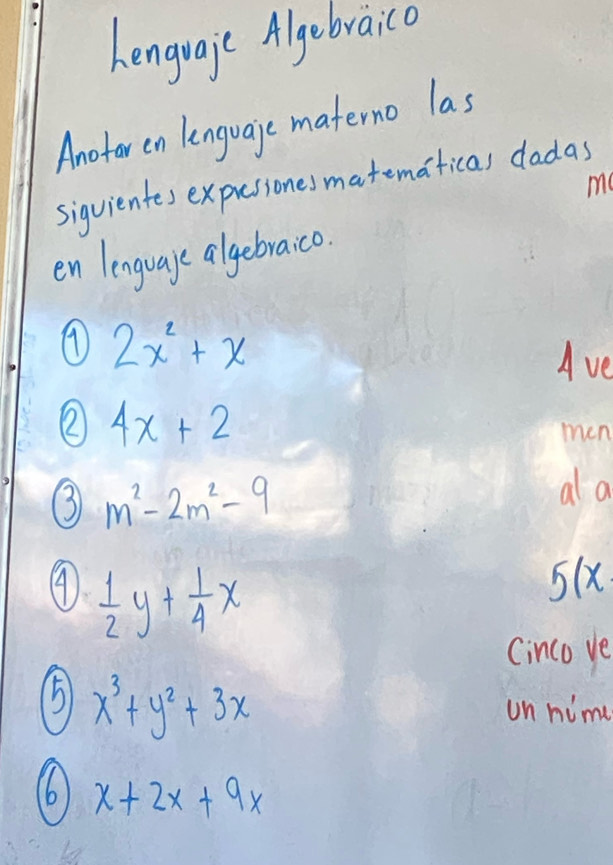 Lenguaje Algebraico
Anotar en lenguaje materno las
siguientes expresiones matemáticas dadas
en lenguaje algebraico.
① 2x² + x
② 4x + 2
③ m² - 2m² - 9
④ 1/2 y + 1/4 x
⑤ x³ + y² + 3x
⑥ x + 2x + 9x
4 ve
men
al a
5(x
Cinco ve
un núme